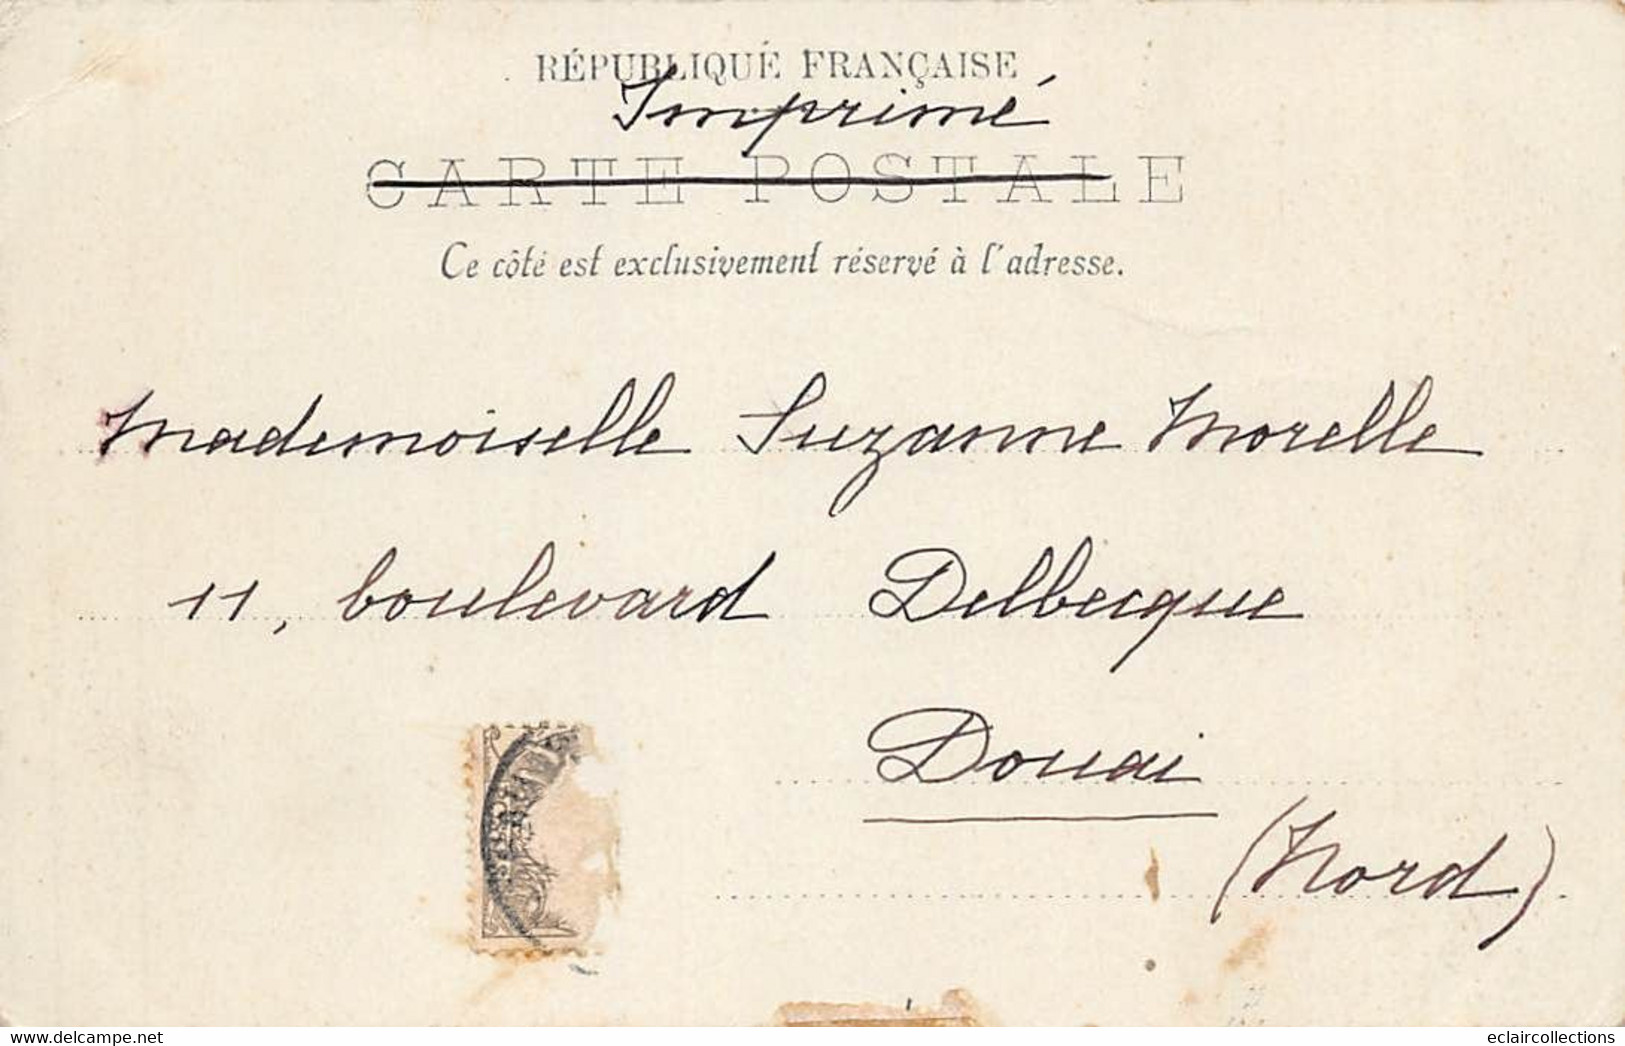 RÉPUBLIQUE FRANÇAISE
Imprimé
CARTE POSTALE
Ce côté est exclusivement réservé à l'adresse.
Mademoiselle Suzanne Morelle
11, boulevard Delbecque
Douai
(Nord)
www.delcampe.net
eclaircollections